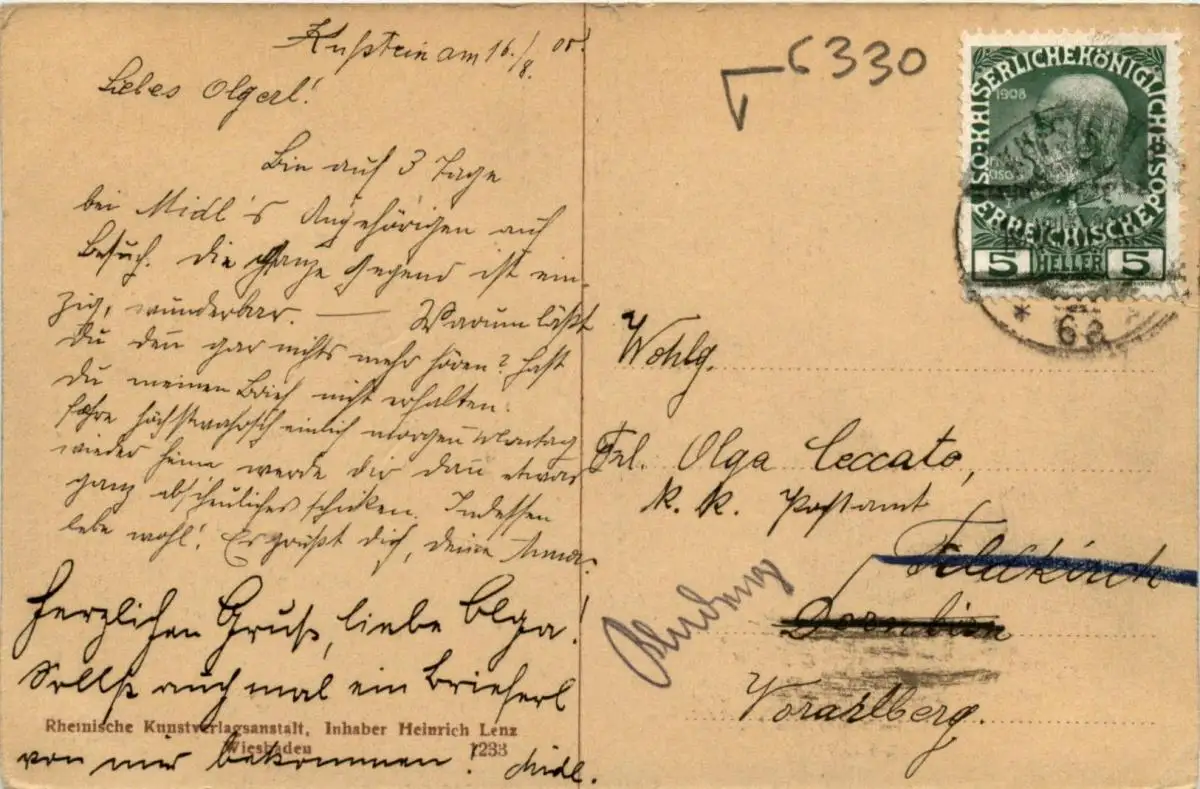 Kufstein am 16./8.
Liebes Olgerl!
Bin auf 3 Tage
bei Midl's Angehörigen auf
Besuch. Die ganze Gegend ist ein-
zig, wunderbar. — Warum läßt
Du denn gar nichts mehr hören? Hast
Du meinen Brief nicht erhalten.
Fahre höchstwahrscheinlich morgen Montag
wieder heim werde Dir dann etwas
ganz abscheuliches schicken. Indessen
lebe wohl! Es grüßt Dich, deine Anna.
Herzlichen Gruß, liebe Olga!
Sollst auch mal ein Brieferl
von mir bekommen! Midl.
Rheinische Kunstverlagsanstalt, Inhaber Heinrich Lenz
Wiesbaden 1233
6330
KAISERLICHE KÖNIGLICHE ÖSTERREICHISCHE POST
1908
5 HELLER 5
* 6a
Wohlg.
Frl. Olga Ceccato,
k. k. Postamt
Feldkirch
Dornbirn
Bludenz
Vorarlberg.